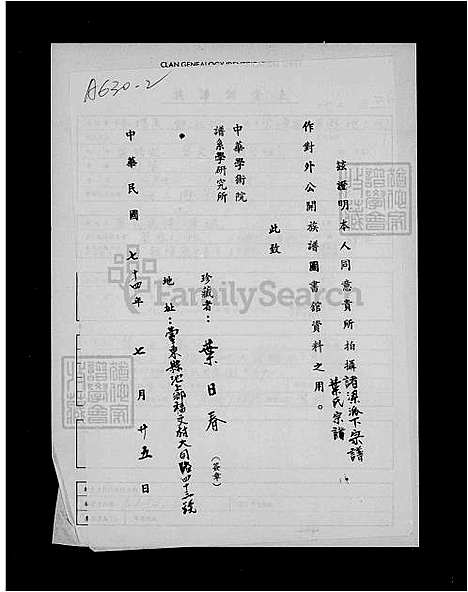 CLAN GENEALOGY
A630-2
茲證明本人同意貴所拍攝諸梁派下宗譜
葉氏宗譜
作對外公開族譜圖書館資料之用。
此致
中華學術院
譜系學研究所
珍藏者：葉日春（簽章）
地址：臺東縣池上鄉福文村大同路四十三號
中華民國七十四年七月廿五日
FamilySearch